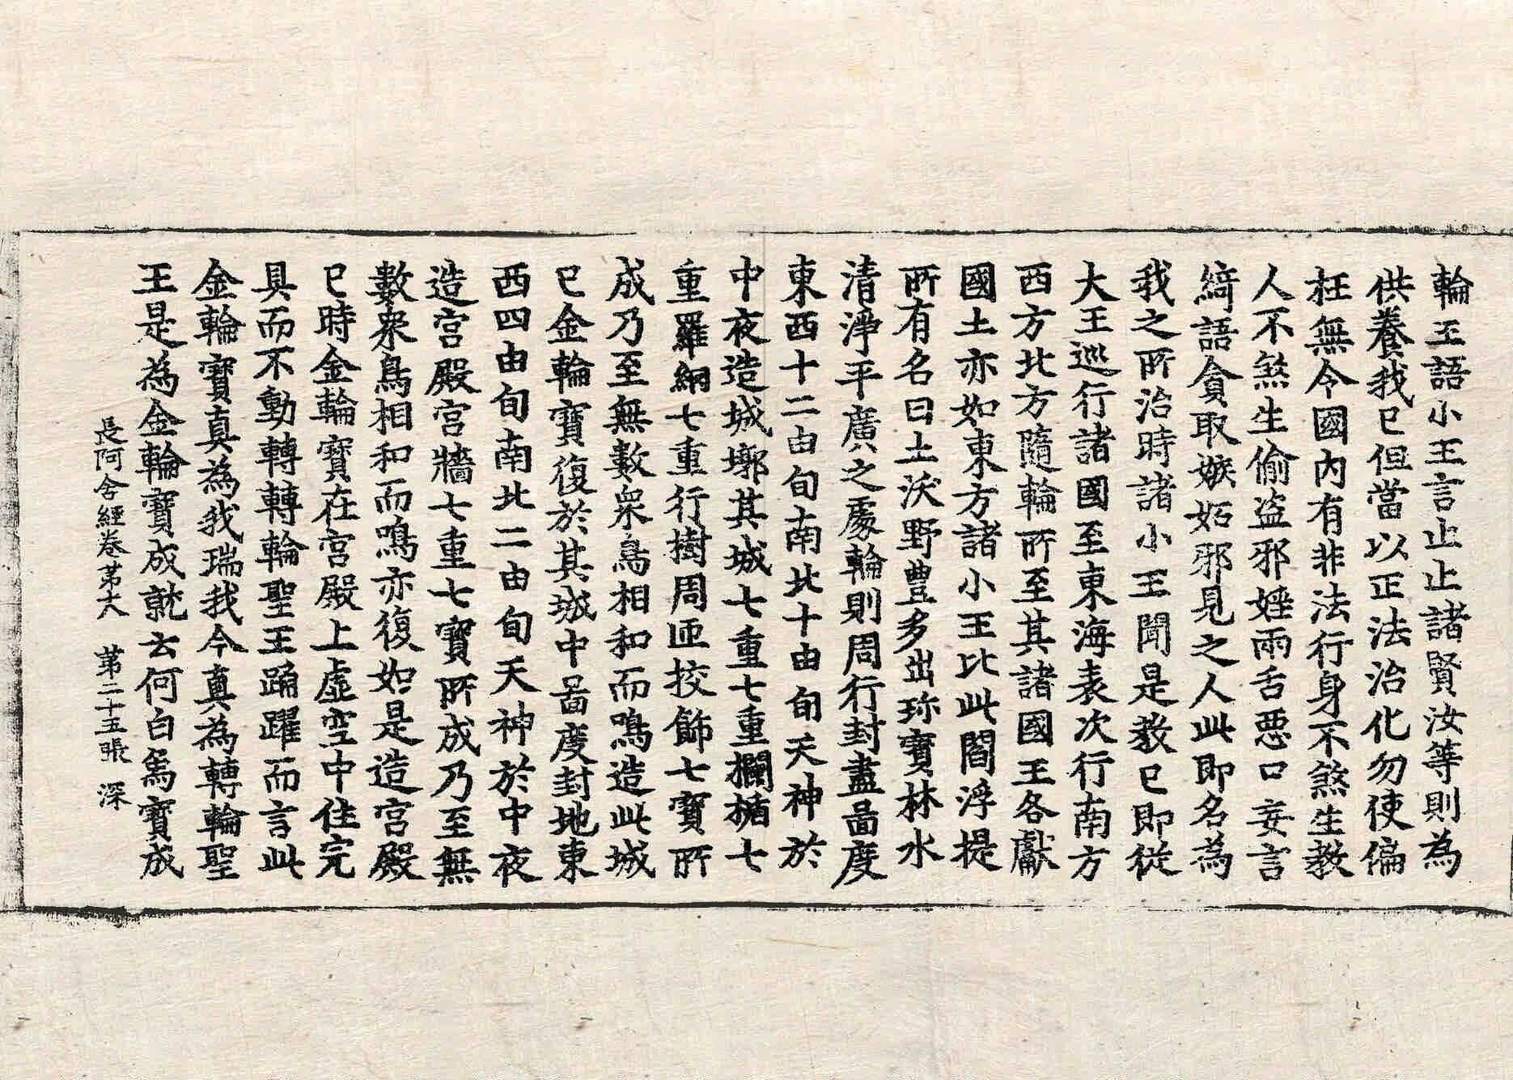 輪王語小王言止止諸賢汝等則為
供養我已但當以正法治化勿使偏
枉無令國內有非法行身不煞生教
人不煞生偷盜邪婬兩舌惡口妄言
綺語貪取嫉妬邪見之人此即名為
我之所治時諸小王聞是教已即從
大王巡行諸國至東海表次行南方
西方北方隨輪所至其諸國王各獻
國土亦如東方諸小王比此閻浮提
所有名曰土沃野豊多出珎寶林水
清淨平廣之處輪則周行封畫啚度
東西十二由旬南北十由旬天神於
中夜造城墎其城七重七重欄楯七
重羅網七重行樹周匝挍飾七寶所
成乃至無數眾鳥相和而鳴造此城
已金輪寶復於其城中啚度封地東
西四由旬南北二由旬天神於中夜
造宮殿宮牆七重七寶所成乃至無
數眾鳥相和而鳴亦復如是造宮殿
已時金輪寶在宮殿上虛空中住完
具而不動轉轉輪聖王踊躍而言此
金輪寶真為我瑞我今真為轉輪聖
王是為金輪寶成就云何白象寶成
長阿含經卷苐十八 苐二十五張 深